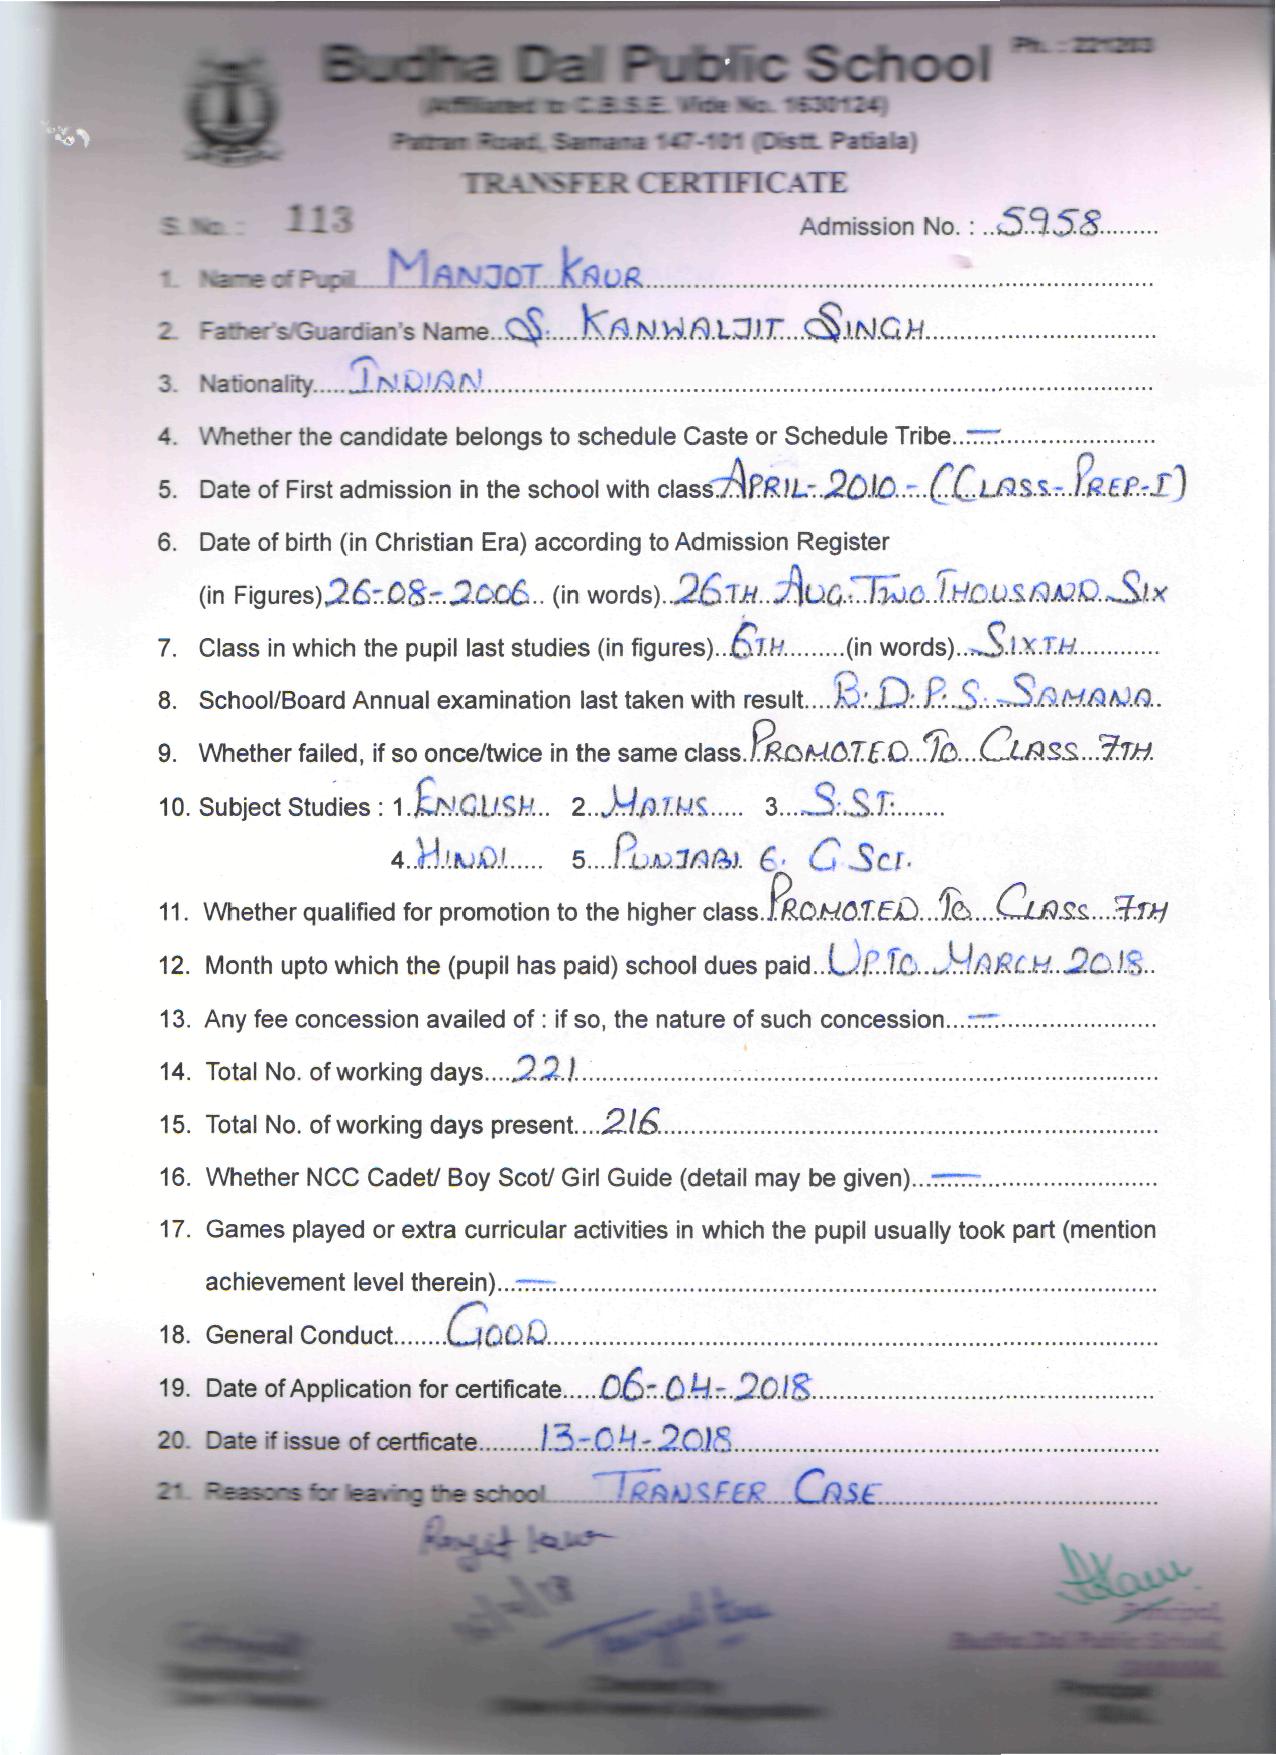 Budha Dal Public School
Ph. : 221263
(Affiliated to C.B.S.E. Vide No. 1630124)
Patran Road, Samana 147-101 (Distt. Patiala)
TRANSFER CERTIFICATE
S. No. : 113 Admission No. : 5958
1. Name of Pupil MANJOT KAUR
2. Father's/Guardian's Name S. KANWALJIT SINGH
3. Nationality INDIAN
4. Whether the candidate belongs to schedule Caste or Schedule Tribe —
5. Date of First admission in the school with class APRIL-2010-(CLASS-PREP-I)
6. Date of birth (in Christian Era) according to Admission Register
(in Figures) 26-08-2006 (in words) 26TH AUG. TWO THOUSAND SIX
7. Class in which the pupil last studies (in figures) 6TH (in words) SIXTH
8. School/Board Annual examination last taken with result B.D.P.S. SAMANA
9. Whether failed, if so once/twice in the same class PROMOTED TO CLASS 7TH
10. Subject Studies : 1. ENGLISH 2. MATHS 3. S.ST.
4. HINDI 5. PUNJABI 6. G.Sci.
11. Whether qualified for promotion to the higher class PROMOTED TO CLASS 7TH
12. Month upto which the (pupil has paid) school dues paid UPTO MARCH 2018
13. Any fee concession availed of : if so, the nature of such concession —
14. Total No. of working days 221
15. Total No. of working days present 216
16. Whether NCC Cadet/ Boy Scot/ Girl Guide (detail may be given) —
17. Games played or extra curricular activities in which the pupil usually took part (mention
achievement level therein) —
18. General Conduct GOOD
19. Date of Application for certificate 06-04-2018
20. Date if issue of certficate 13-04-2018
21. Reasons for leaving the school TRANSFER CASE
Principal,
Budha Dal Public School,
Principal